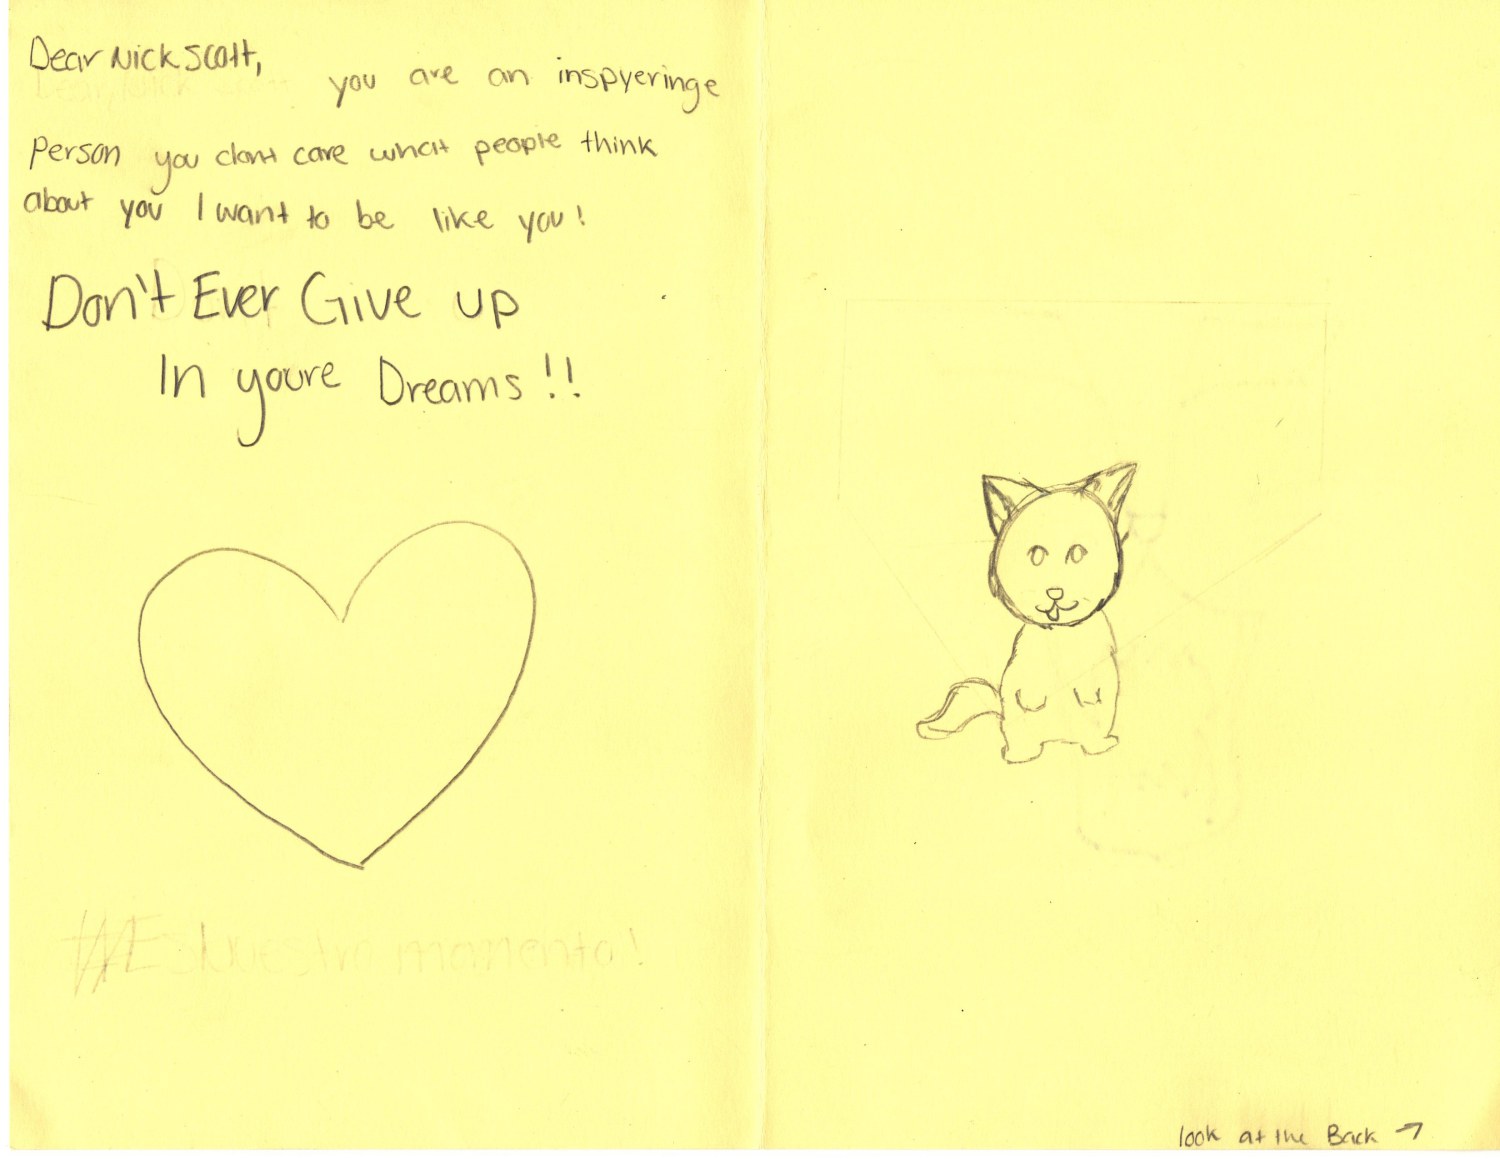 Dear Nick Scott,
you are an inspyeringe
person you dont care what people think
about you I want to be like you!
Don't Ever Give up
In youre Dreams!!
#EsNuestro momento!
look at the Back →